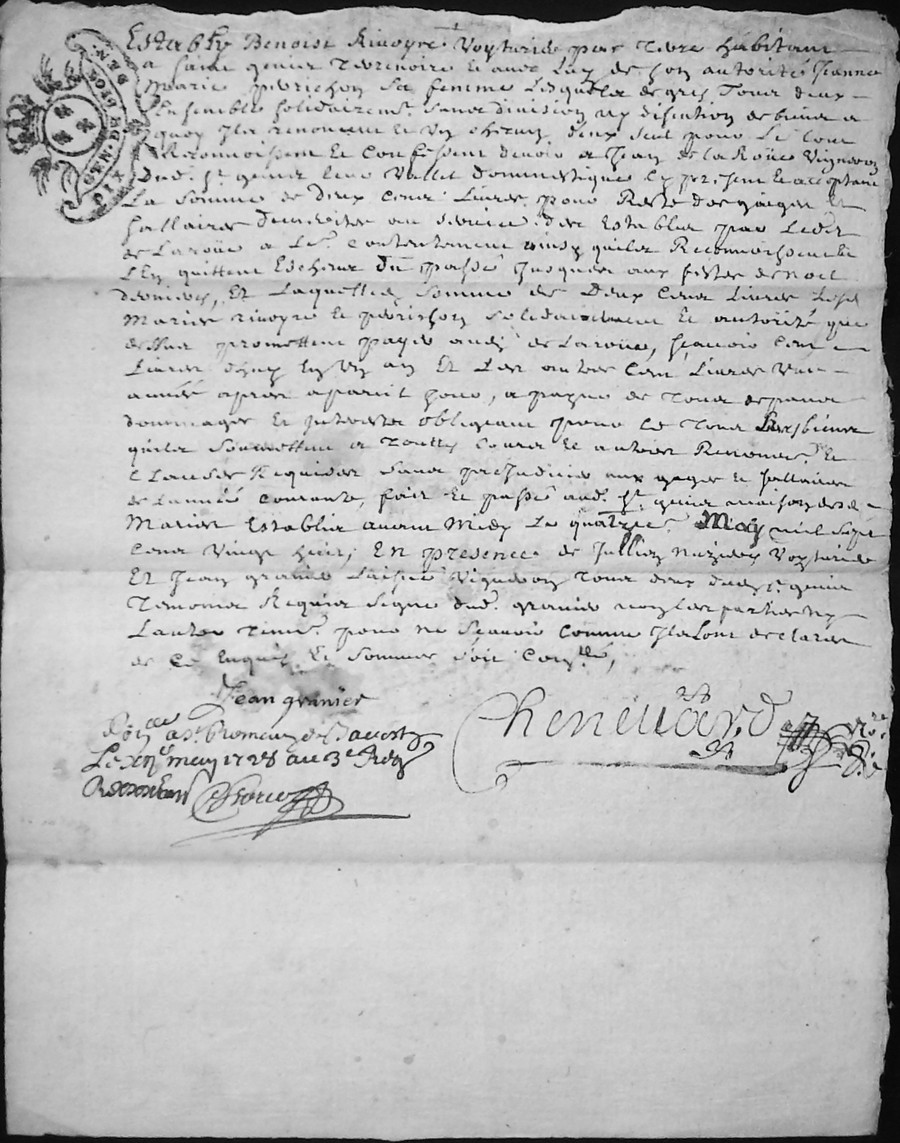 GEN. DE LION. SIX DEN
Establÿ Benoist Rivoyre Voyturier par terre habitant
a saint genis terrenoire et avec luy de son autorité Jeanne
Marie perrichon sa femme Lesquels de gré tous deux
Ensemble solidairemt. sans division ny discution de biens a
quoy Ils renoncent et Un chacun deux seul pour le tout
Reconnoissent et Confessent devoir a Jean de la Roüe Vigneron
Dud. St. genis leur Vallet domestique cy present et acceptant
La somme de deux Cent Livres pour Reste des gages et
sallaires au service des Establis par Ledit
de Laroüe a Leur Contentement ainsy quils Reconnoissent
Len quittent du passé Jusques aux festes de noel
dernieres, Et Laquelle somme de Deux Cent Livres Lesd
Mariés rivoyre et perrichon solidairement et autorité que
dessus promettent payer aud. de Laroüe, sçavoir Cent
Livres dhuy En Un an Et Les autres Cent Livres Une
année apres a pareil jour, a payne de tous despans
dommages et Interests obligeant pour Le tout Leurs biens
quils soumettent a touttes Cours et autres Renoncs. Et
Clauses Requises sans prejudice aux gages et sallaires
de Lannée Courante, fait et passé aud. St. genis maison desd.
Mariés Establis avant Midy Le quatre May mil sept
Cent Vingt huit, En presence de Jullien Voyturier
Et Jean granier Laisné Vigneron tous deux dud. St. genis
temoins Requis signé Led. granier non les parties ny
Lautre temt. pour ne sçavoir Comme Ils ont declaré
de Ce Enquis Et Sommés soit Conllé,
Jean granier
Chenevard Nre.
may 1728 au 3e Reg